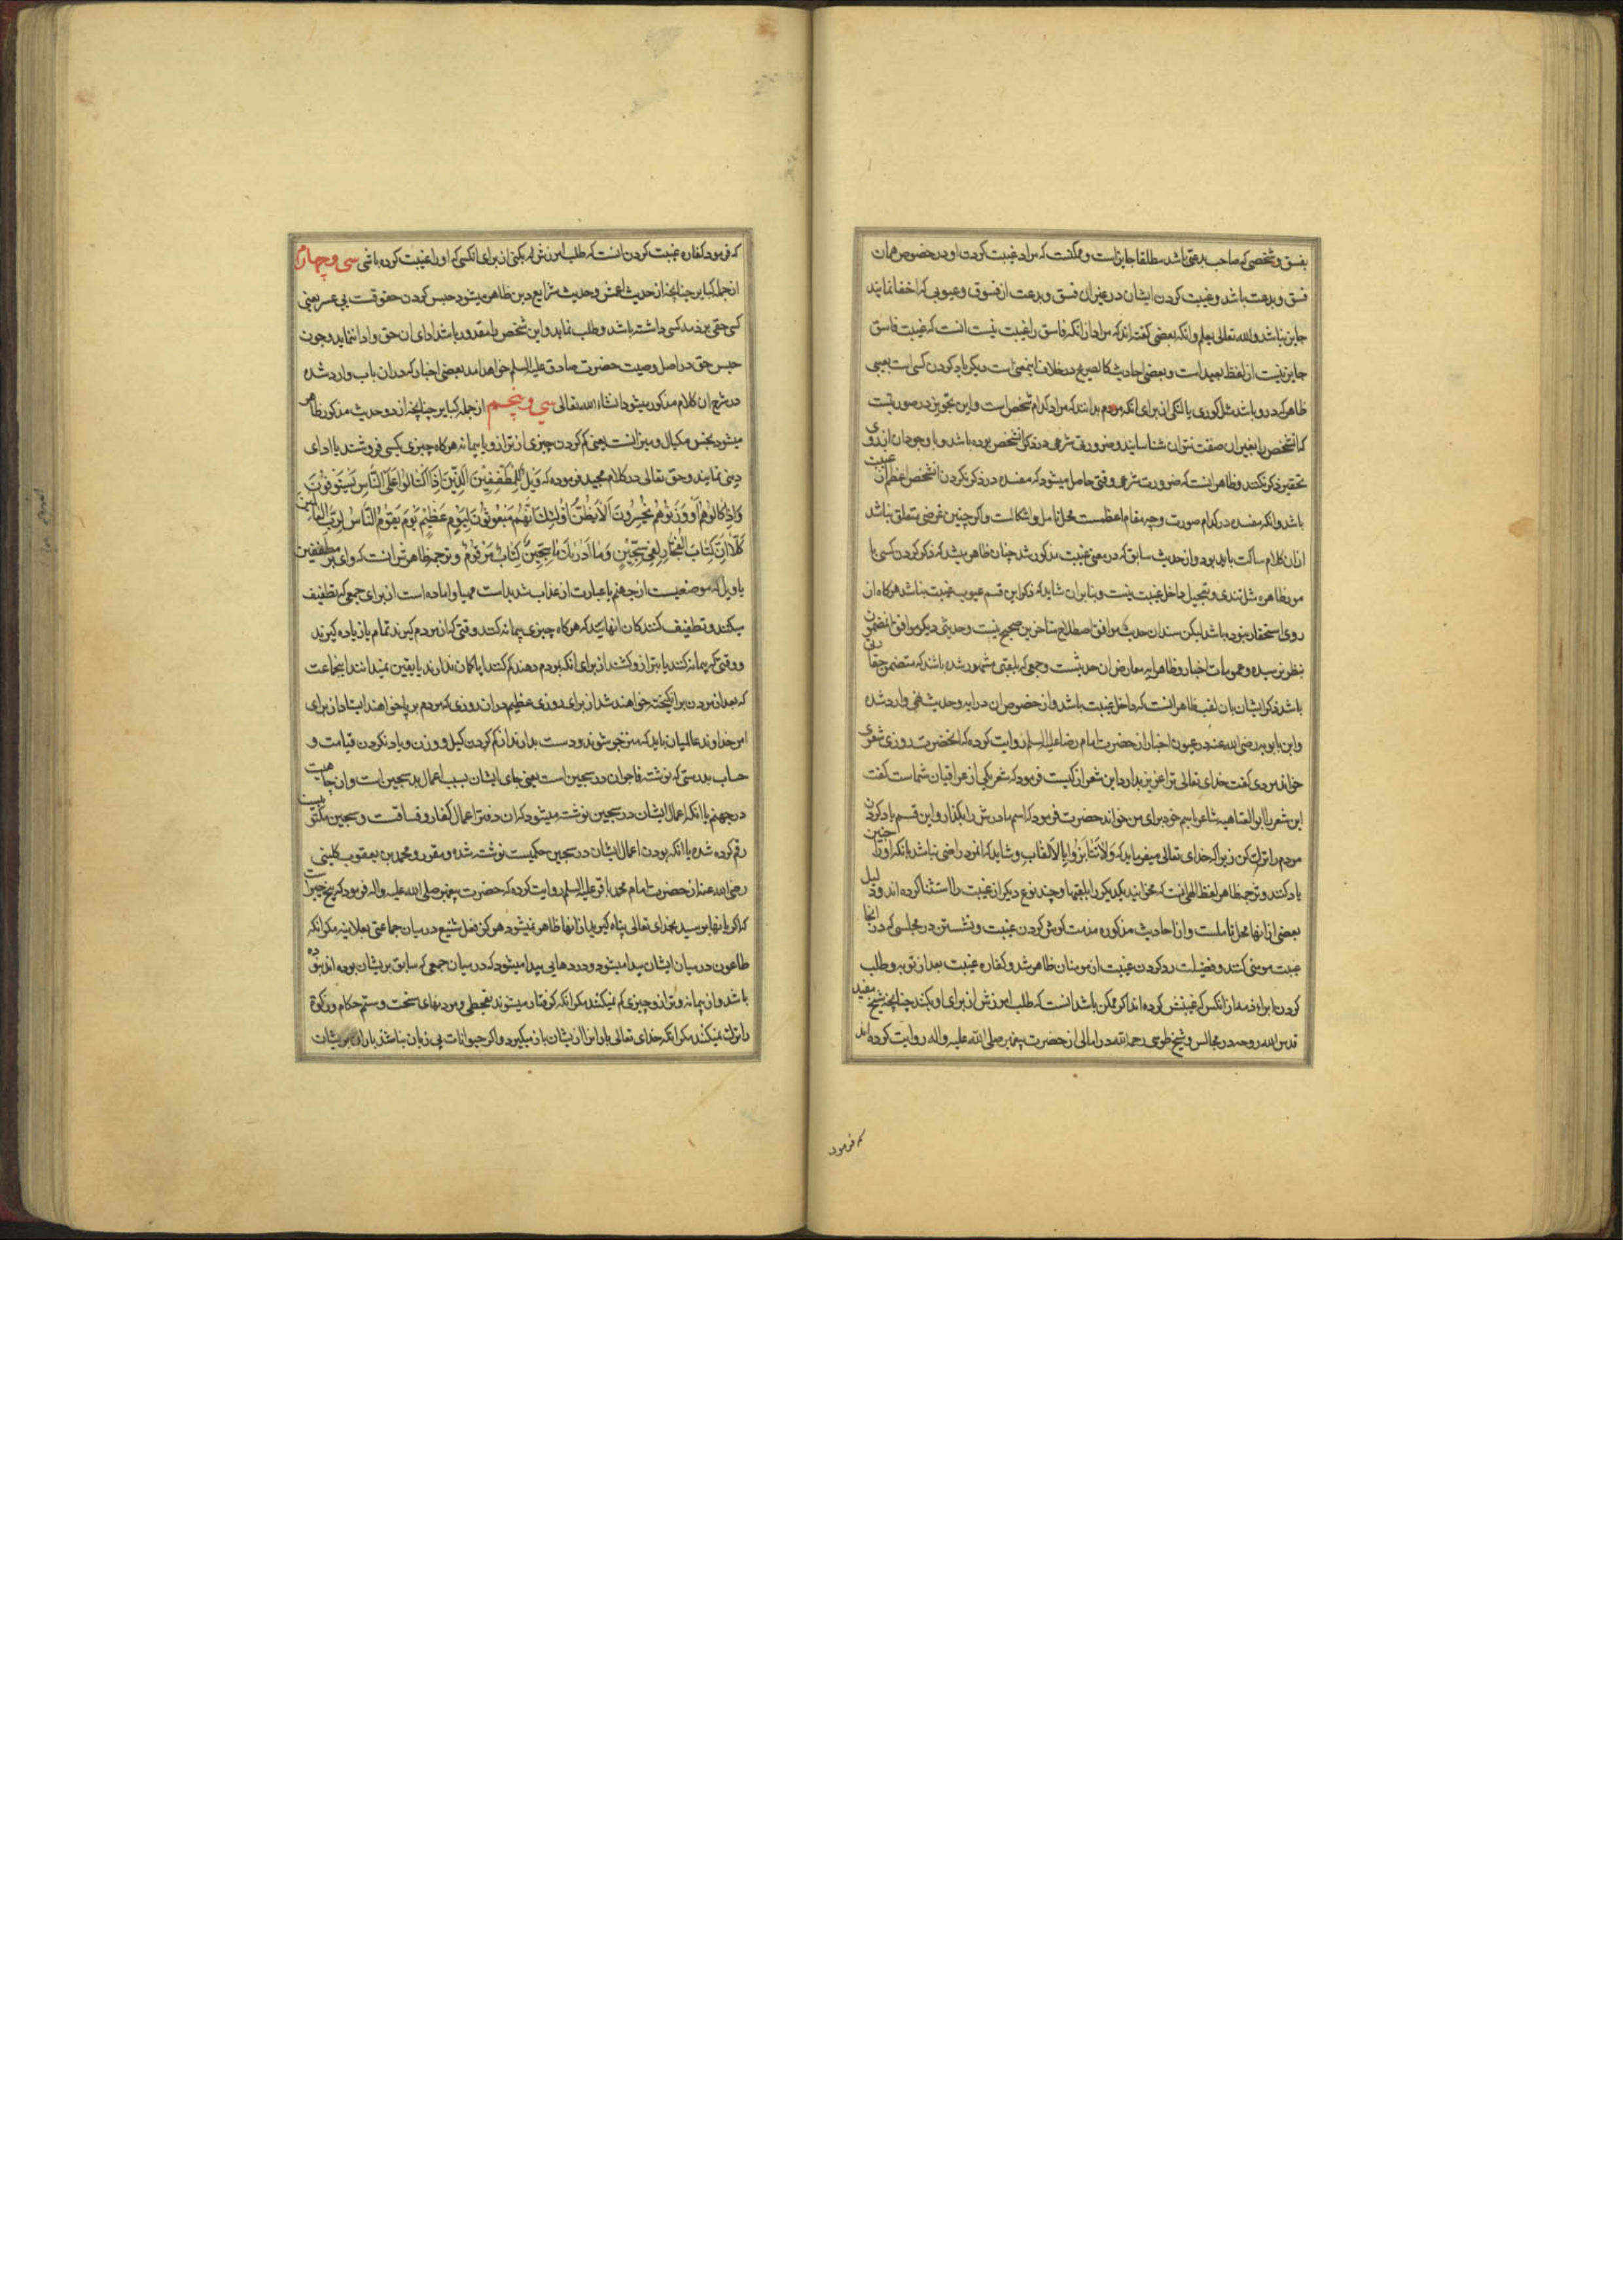 بفسق و شخصی که صاحب بدعتی باشد مطلقا جایز است و ممکنست که مراد غیبت کردن او در خصوص همان
فسق و بدعت باشد و غیبت کردن ایشان در غیر ان فسق و بدعت از فسوق و عیوبی که اخفا نمایند
جایز نباشد والله تعالی یعلم و انکه بعضی کفته اند که مراد از انکه فاسق را غیبت نیست انست که غیبت فاسق
جایز نیست از لفظ بعید است و بعضی احادیث کالصریح در خلاف اینمعنی است دیکر یاد کردن کسی است بعیبی
ظاهر که در او باشد مثل کوری یا لنکی از برای انکه مردم بدانند که مراد کدام شخص است و این تجویز در صورتیست
که انشخص را بغیر ان صفت نتوان شناسانید و ضرورت شرعی در ذکر انشخص بوده باشد و با وجود ان از روی
تحقیر ذکر نکنند و ظاهر انست که ضرورت شرعی وقتی حاصل میشود که مفسده در ذکر نکردن انشخص اعظم از عیبت
باشد و انکه مفسده در کدام صورت و چه مقام اعظمست محل تامل و اشکالست و اکر چنین غرضی متعلق نباشد
ازان کلام ساکت باید بود و از حدیث سابق که در معنی غیبت مذکور شد چنان ظاهر میشد که ذکر کردن کسی با
مور ظاهره مثل تندی و تعجیل داخل غیبت نیست و بنابر ان شاید که ذکر این قسم عیوب غیبت نباشد هرکاه از
روی استحقار نبوده باشد لیکن سند ان حدیث موافق اصطلاح متاخرین صحیح نیست و حدیثی دیکر موافق انمضمون
بنظر نرسیده و عمومات اخبار و ظاهر ایه معارض ان حدیثست و جمعی که بلقبی مشهور شده باشد که متضمن حقارتی
باشد ذکر ایشان بان لقب ظاهر انست که داخل غیبت باشد و از خصوص ان در ایه و حدیث نهی وارد شده
و ابن بابویه رضی الله عنه در عیون اخبار از حضرت امام رضا علیه السلم روایت کرده که انحضرت روزی شعری
خواند مردی کفت خدای تعالی ترا عزیز بدارد این شعر از کیست فرمود که شعر یکی از عراقیان شماست کفت
این شعر را ابو العتاهیه شاعر باسم خود برای من خواند حضرت فرمود که اسم مادرش را بکذار و این قسم یاد کردن
مردم را ترک کن زیرا که خدای تعالی میفرماید که وَلَا تَنَابَزُوا بِالْاَلْقَابِ و شاید که انمرد راضی نباشد بانکه او را چنین
یاد کنند و ترجمه ظاهر لفظ الهی انست که مخوانید یکدیکر را بلقبها و چند نوع دیکر از غیبت را استثنا کرده اند و دلیل
بعضی از انها محل تاملست و از احادیث مذکوره مذمت کوش کردن غیبت و نشستن در مجلسی که در انجا
غیبت مومنی کنند و فضیلت رد کردن غیبت از مومنان ظاهر شد و کفاره غیبت بعد از توبه و طلب
کردن ابراء ذمه از انکس که غیبتش کرده اند اکر ممکن باشد انست که طلب امرزش از برای او بکند چنانچه شیخ مفید
قدس الله روحه در مجالس و شیخ طوسی رحمه الله در امالی از حضرت پیغمبر صلی الله علیه و اله روایت کرده اند
که فرمود
که فرمود کفاره غیبت کردن انست که طلب امرزش که بکنی از برای انکسی که او را غیبت کرده باشی سی و چهارم
از جمله کبایر چنانچه از حدیث اعمش و حدیث شرایع دین ظاهر میشود حبس کردن حقوقست بی عسر یعنی
کسی حقی بر ذمه کسی داشته باشد و طلب نماید و این شخص را مقدور باشد ادای ان حق و ادا ننماید و چون
حبس حق در اصل وصیت حضرت صادق علیه السلم خواهد امد بعضی اخبار که در ان باب وارد شده
در شرح ان کلام مذکور میشود انشاء الله تعالی سی و پنجم از جمله کبایر چنانچه از دو حدیث مذکور ظاهر
میشود بخس مکیال و میزانست یعنی کم کردن چیزی از ترازو یا پیمانه هرکاه چیزی بکسی فروشند یا ادای
دینی نمایند و حق تعالی در کلام مجید فرموده که وَیْلٌ لِلْمُطَفِّفِینَ اَلَّذِینَ اِذَا اکْتَالُوا عَلَی النَّاسِ یَسْتَوْفُونَ
وَ اِذَا کَالُوهُمْ اَوْ وَزَنُوهُمْ یُخْسِرُونَ اَلَا یَظُنُّ اُولٰئِکَ اَنَّهُمْ مَبْعُوثُونَ لِیَوْمٍ عَظِیمٍ یَوْمَ یَقُومُ النَّاسُ لِرَبِّ الْعَالَمِینَ
کَلَّا اِنَّ کِتَابَ الْفُجَّارِ لَفِی سِجِّینٍ وَ مَا اَدْرٰیکَ مَا سِجِّینٌ کِتَابٌ مَرْقُومٌ و ترجمه ظاهرش انست که وای بر مطففین
یا ویل که موضعیست از جهنم یا عبارت از عذاب شدید است مهیا و اماده است از برای جمعی که تطفیف
میکنند و تطفیف کنندکان انهایند که هرکاه چیزی پیمانه کنند وقتی که از مردم کیرند تمام یا زیاده کیرند
و وقتی که پیمانه کنند یا بترازو کشند از برای انکه بمردم دهند کم کنند ایا کمان ندارند یا یقین نمیدانند اینجماعت
که بعد از مردن برانکیخته خواهند شد از برای روزی عظیم در ان روزی که مردم بر پا خواهند ایستاد از برای
امر خداوند عالمیان باید که منزجر شوند و دست بدارند از کم کردن کیل و وزن و یاد نکردن قیامت و
حساب بدرستی که نوشته فاجران در سجین است یعنی جای ایشان بسبب اعمال بد سجین است و ان جاهیست
در جهنم یا انکه اعمال ایشان در سجین نوشته میشود که ان دفتر اعمال کفار و فساقست و سجین مکتوبیست
رقم کرده شده یا انکه بودن اعمال ایشان در سجین حکمیست نوشته شده و مقرر و محمد بن یعقوب کلینی
رضی الله عنه از حضرت امام محمد باقر علیه السلم روایت کرده که حضرت پیغمبر صلی الله علیه و اله فرمود که پنج چیز است
که اکر بانها برسید بخدای تعالی پناه کیرید از انها ظاهر نمیشود هرکز فعل شنیع در میان جماعتی بعلانیه مکر انکه
طاعون در میان ایشان پیدا میشود و دردهایی پیدا میشود که در میان جمعی که سابق بر ایشان بوده اند نبوده
باشد و از پیمانه و ترازو چیزی کم نمیکنند مکر انکه کرفتار میشوند بقحطی و مردیهای سخت و ستم حکام و زکوة
را ترک نمیکنند مکر انکه خدای تعالی باران را از ایشان باز میکیرد و اکر حیوانات بی زبان نباشند باران بر ایشان